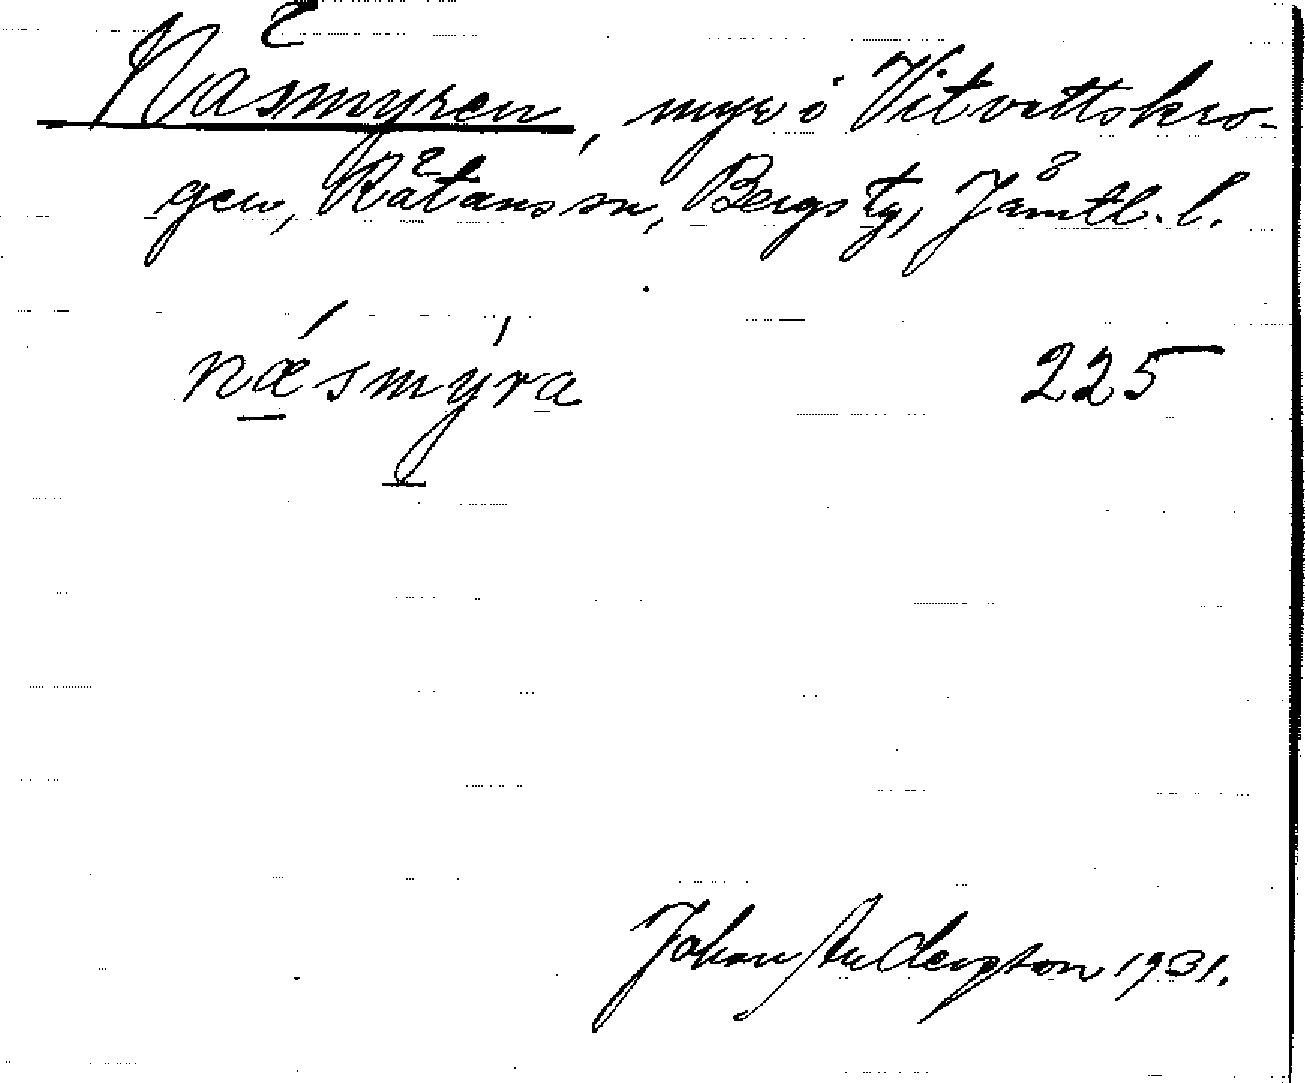 Näsmyren, myr i Vitvattskro-
gen, Rätans sn, Bergs tg, Jämtl. l.
næ´smy´ra 225
Johan Anderzson 1931.